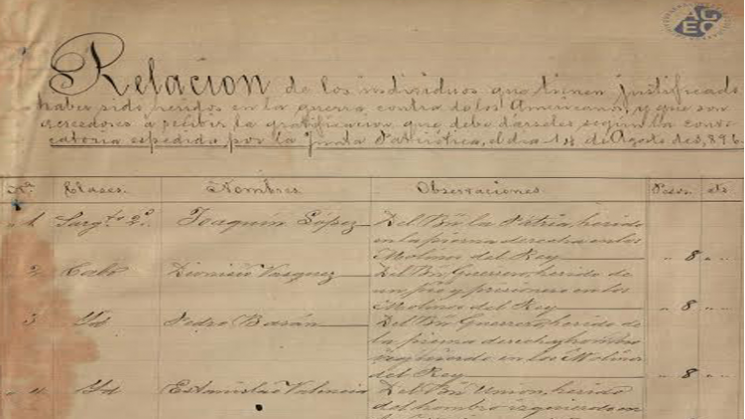 AG
EO
Relacion de los individuos que tienen justificado
haber sido heridos en la guerra contra de los Americanos, y que son
acreedores á percibir la gratificacion que debe dárseles segun la convo-
catoria espedida por la Junta Patriótica, el dia 18 de Agosto de 1,896.
Nº Clases. Nombres. Observaciones. Pesos. cts.
1 Sargto 2º. Joaquín López Del Bn. la Patria, herido
en la pierna derecha en los
Molinos del Rey 8
2 Cabo Dionisio Vasquez Del Bn. Guerrero, herido de
un pie y prisionero en los
Molinos del Rey 8
3 Id Pedro Basán Del Bn. Guerrero, herido de
la pierna derecha y hombro
izquierdo, en los Molinos
del Rey 8
4 Id Estanislao Valencia Del Bn. Union, herido
del hombro izquierdo en